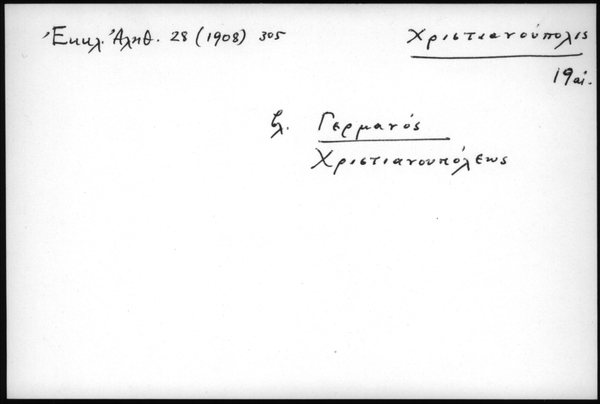 Ἐκκλ. Ἀληθ. 28 (1908) 305
Χριστιανούπολις
19 αἰ.
βλ. Γερμανός
Χριστιανουπόλεως